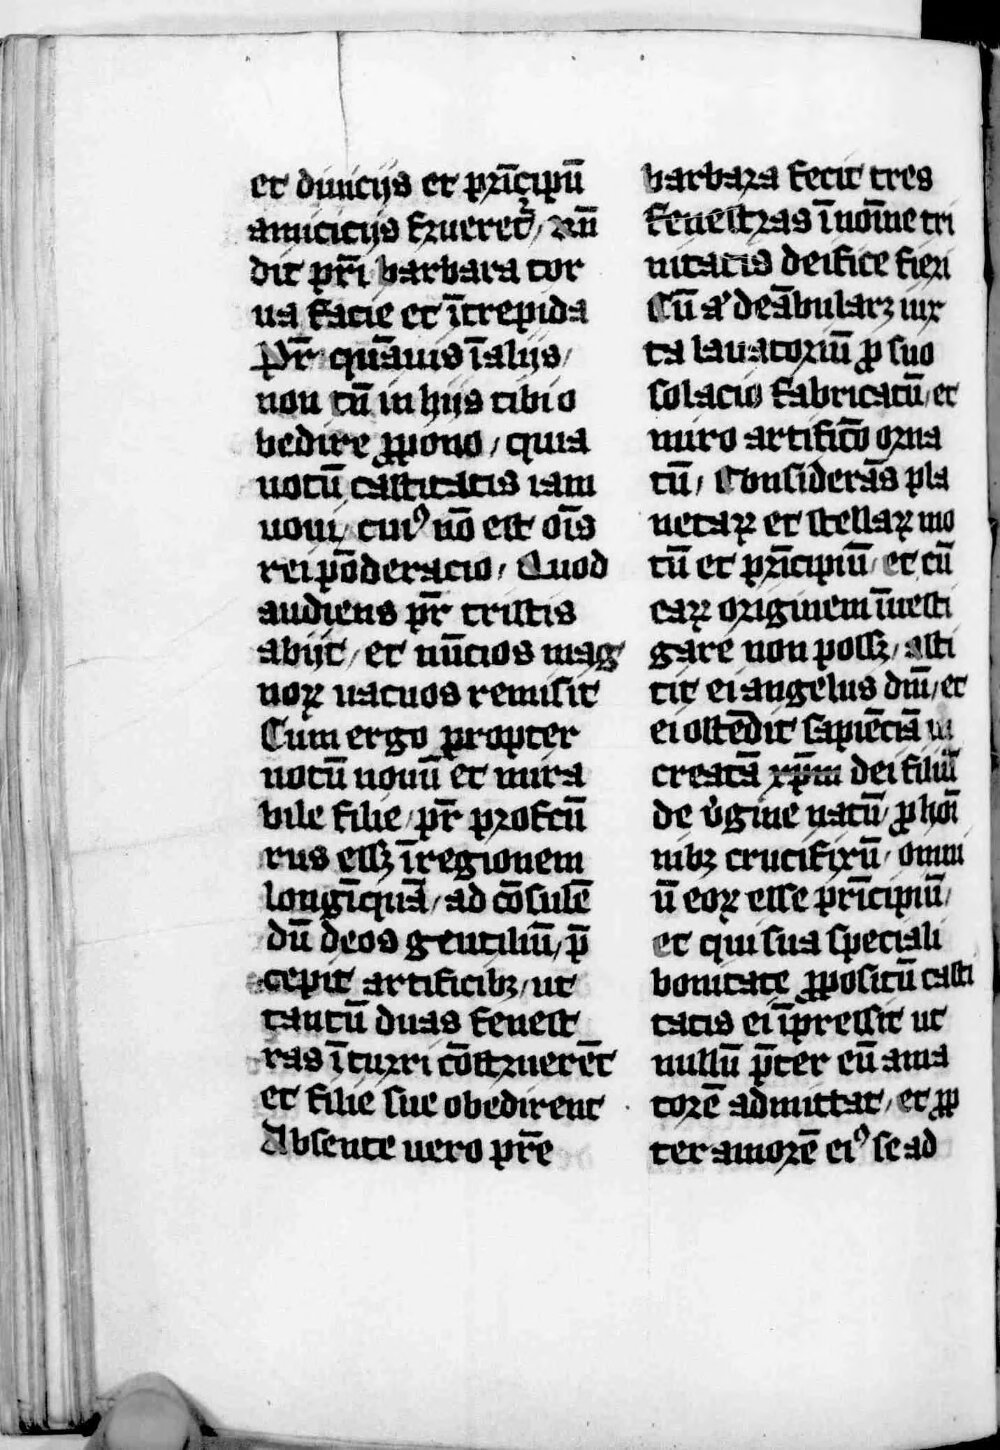 et diuicijs et pͥncipū
amicicijs frueret᷑, Rn̄
dit pr̄i barbara tor
ua facie et ītrepida
Pr̄ quāuis ī alijs,
non tn̄ in hijs tibi o
bedire ꝓpono, quia
uotū castitatis iam
uoui, cuiꝰ nō est oīs
rei pōderacio, Quod
audiens pr̄ tristis
abijt, et nūcios mag
noꝝ uacuos remisit
Cum ergo propter
uotū nouū et mira
bile filie, pr̄ profectū
rus essꝫ ī regionem
longīquā, ad cōsulē
dū deos gentiliū, p̄
cepit artificibꝫ, ut
tantū duas fenest
ras ī turri cōstruerēt
et filie sue obedirent
Absente uero pr̄e
barbara fecit tres
fenestras ī noīe tri
nitatis deifice fieri
Cū aͧ deābularꝫ iux
ta lauatoriū ꝓ suo
solacio fabricatū, et
miro artificō orna
tū, Considerās pla
netaꝝ et stellaꝝ mo
tū et pͥncipiū, et cū
eaꝝ originem īuesti
gare non possꝫ, asti
tit ei angelus dn̄i, et
ei ostēdit sapiēciā in
creatā xp̄m dei filiū
de ūgine natū, ꝓ hoī
nibꝫ crucifixū, omni
ū eoꝝ esse pͥncipiū,
et qui sua speciali
bonitate ꝓpositū casti
tatis ei īpressit ut
nullū p̄ter eū ama
torē admittat, et ꝓp
ter amorē eiꝰ se ad